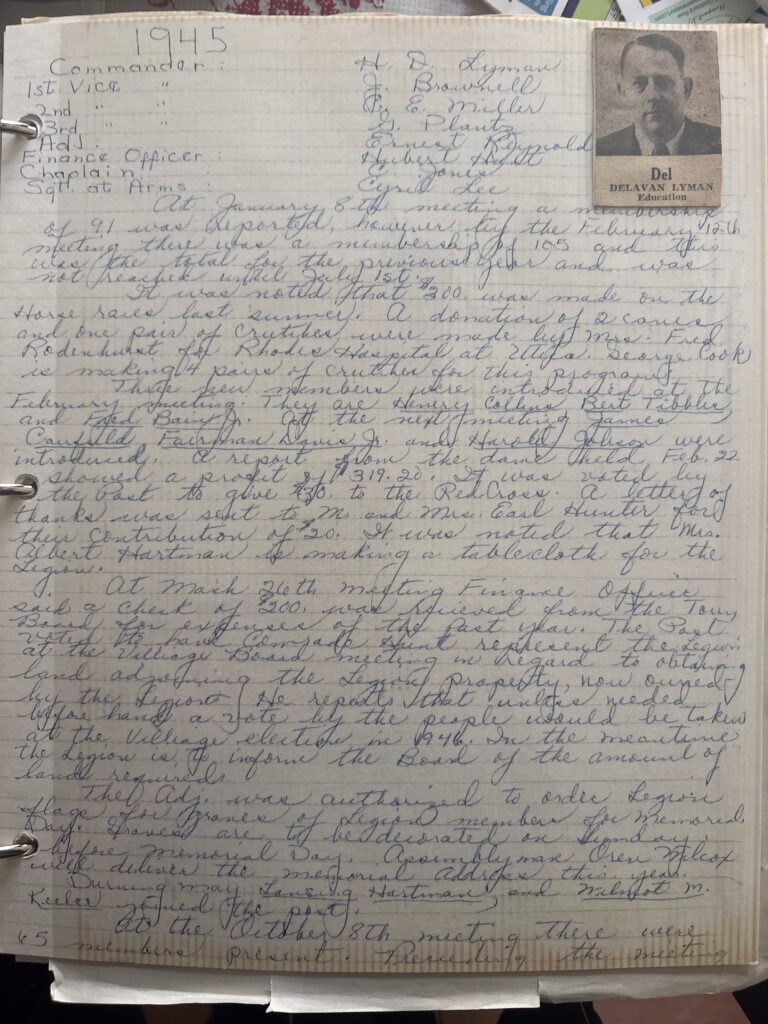 1945
Commander : H. D. Lyman
1st Vice " J. Brownell
2nd " " P. E. Miller
3rd " " G. Plantz
Adj. : Ernest Reynold
Finance Officer : Hubert Hunt
Chaplain : C. Jones
Sgt. at Arms : Cyril Lee
Del
DELAVAN LYMAN
Education
At January 8th meeting a membership
of 91 was reported, however by the February 12th
meeting there was a membership of 105 and this
was the total for the previous year and was
not reached until July 1st.
It was noted that $300. was made on the
Horse races last summer. A donation of 2 canes
and one pair of crutches were made by Mrs. Fred
Rodenhurst for Rhodes Hospital at Utica. George Cook
is making 4 pairs of crutches for this program.
Three new members were introduced at the
February meeting. They are Henery Collins, Bert Tibbles,
and Fred Bain Jr. At the next meeting James
Caufield, Fairman Davis Jr. and Harold Jolison were
introduced. A report from the dance held Feb. 22
showed a profit of $319.20. It was voted by
the post to give $30. to the Red Cross. A letter of
thanks was sent to M. and Mrs. Earl Hunter for
their contribution of $20. It was noted that Mrs.
Albert Hartman is making a tablecloth for the
Legion.
At Mach 26th meeting Finance Officer
said a check of $200. was recieved from the Town
Board for expenses of the past year. The Post
voted to have Comrade Hunt represent the Legion
at the Village Board meeting in regard to obtaining
land adjoining the Legion property, now owned
by the Legion. He reports that unless needed
before hand, a vote by the people would be taken
at the Village election in 1946. In the meantime
the Legion is to inform the Board of the amount of
land required.
The Adj. was authorized to order Legion
flags for graves of Legion members for Memorial
Day. Graves are to be decorated on Sunday
before Memorial Day. Assemblyman Oren Wilcox
will deliver the memorial Address this year.
During may Lansing Hartman, and Wilmot M.
Keeler joined the post.
At the October 8th meeting there were
65 members present. Preceeding the meeting